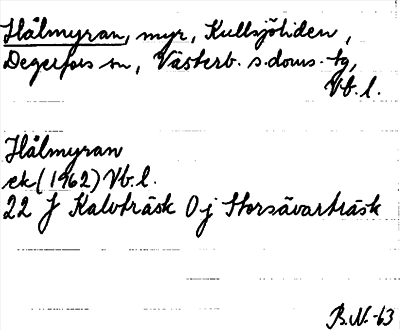 Hålmyran, myr, Kullsjöliden,
Degerfors sn, Västerb. s. doms. tg,
Vb. l.
Hålmyran
ek (1962) Vb. l.
22 J Kalvträsk 0 j Storsävarträsk
B.N.-63